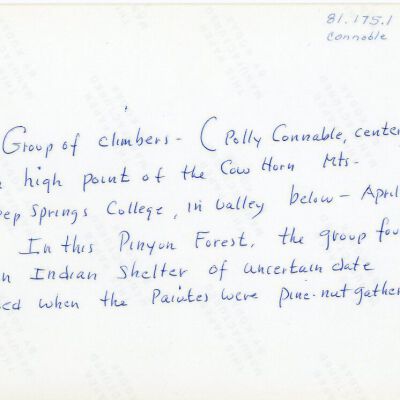 81.175.1
Connable
Group of climbers - (Polly Connable, center
high point of the Cow Horn Mts-
eep Springs College, in valley below - April
In this Pinyon Forest, the group fou
n Indian Shelter of uncertain date
ed when the Paiutes were pine-nut gather